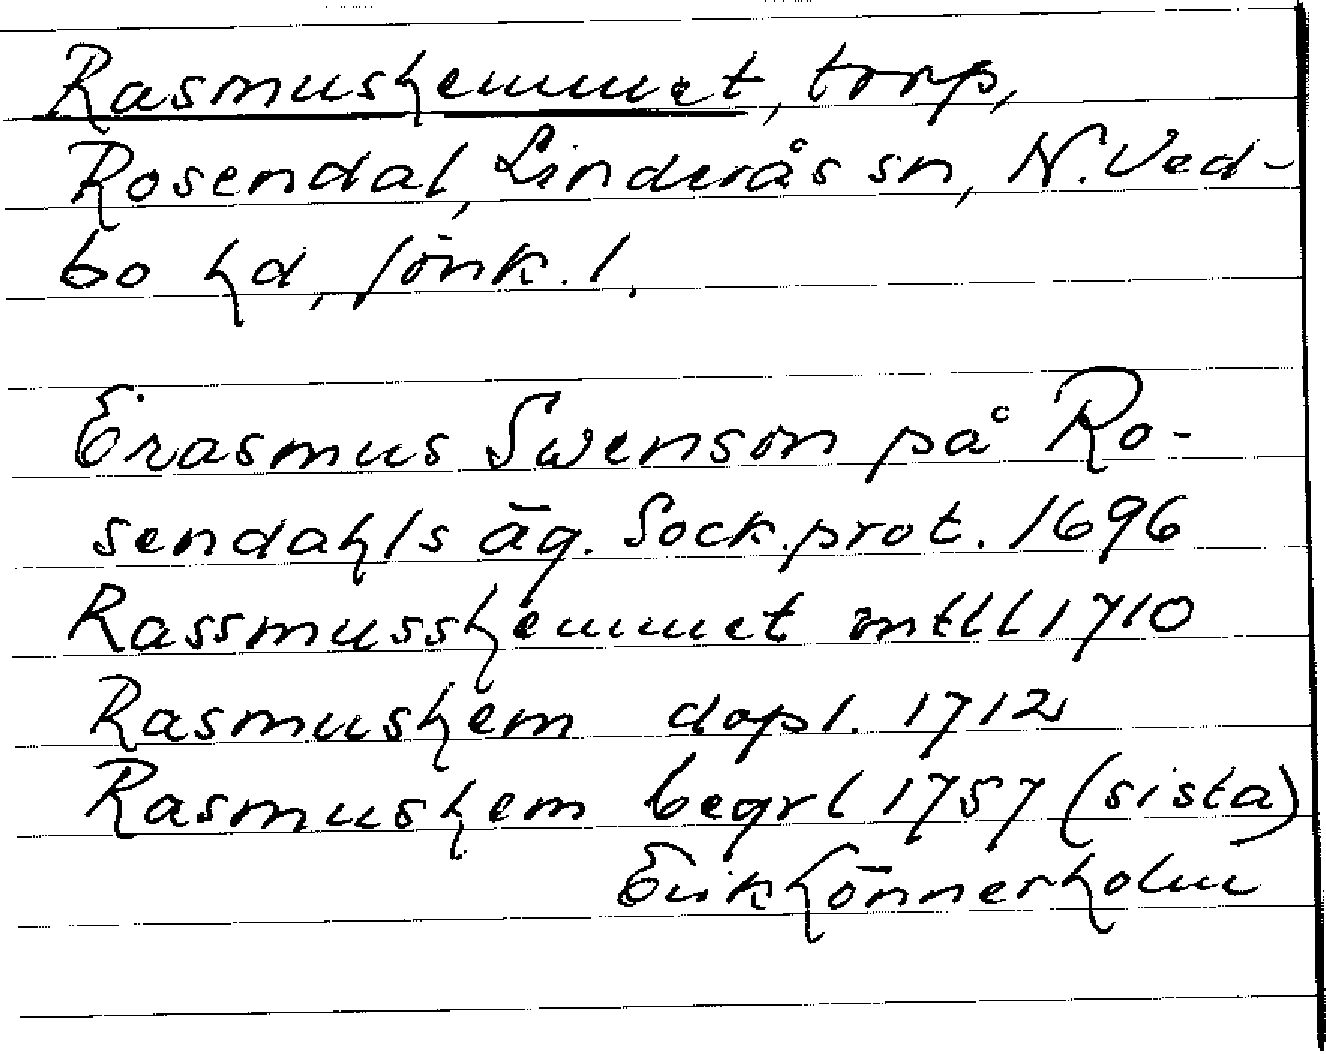 Rasmushemmet, torp,
Rosendal, Linderås sn, N. Ved-
bo hd, Jönk. l.
Erasmus Swenson på Ro-
sendahls äg. Sock.prot. 1696
Rassmusshemmet mtll 1710
Rasmushem dopl. 1712
Rasmushem begrl 1757 (sista)
Erik Hönnerholm